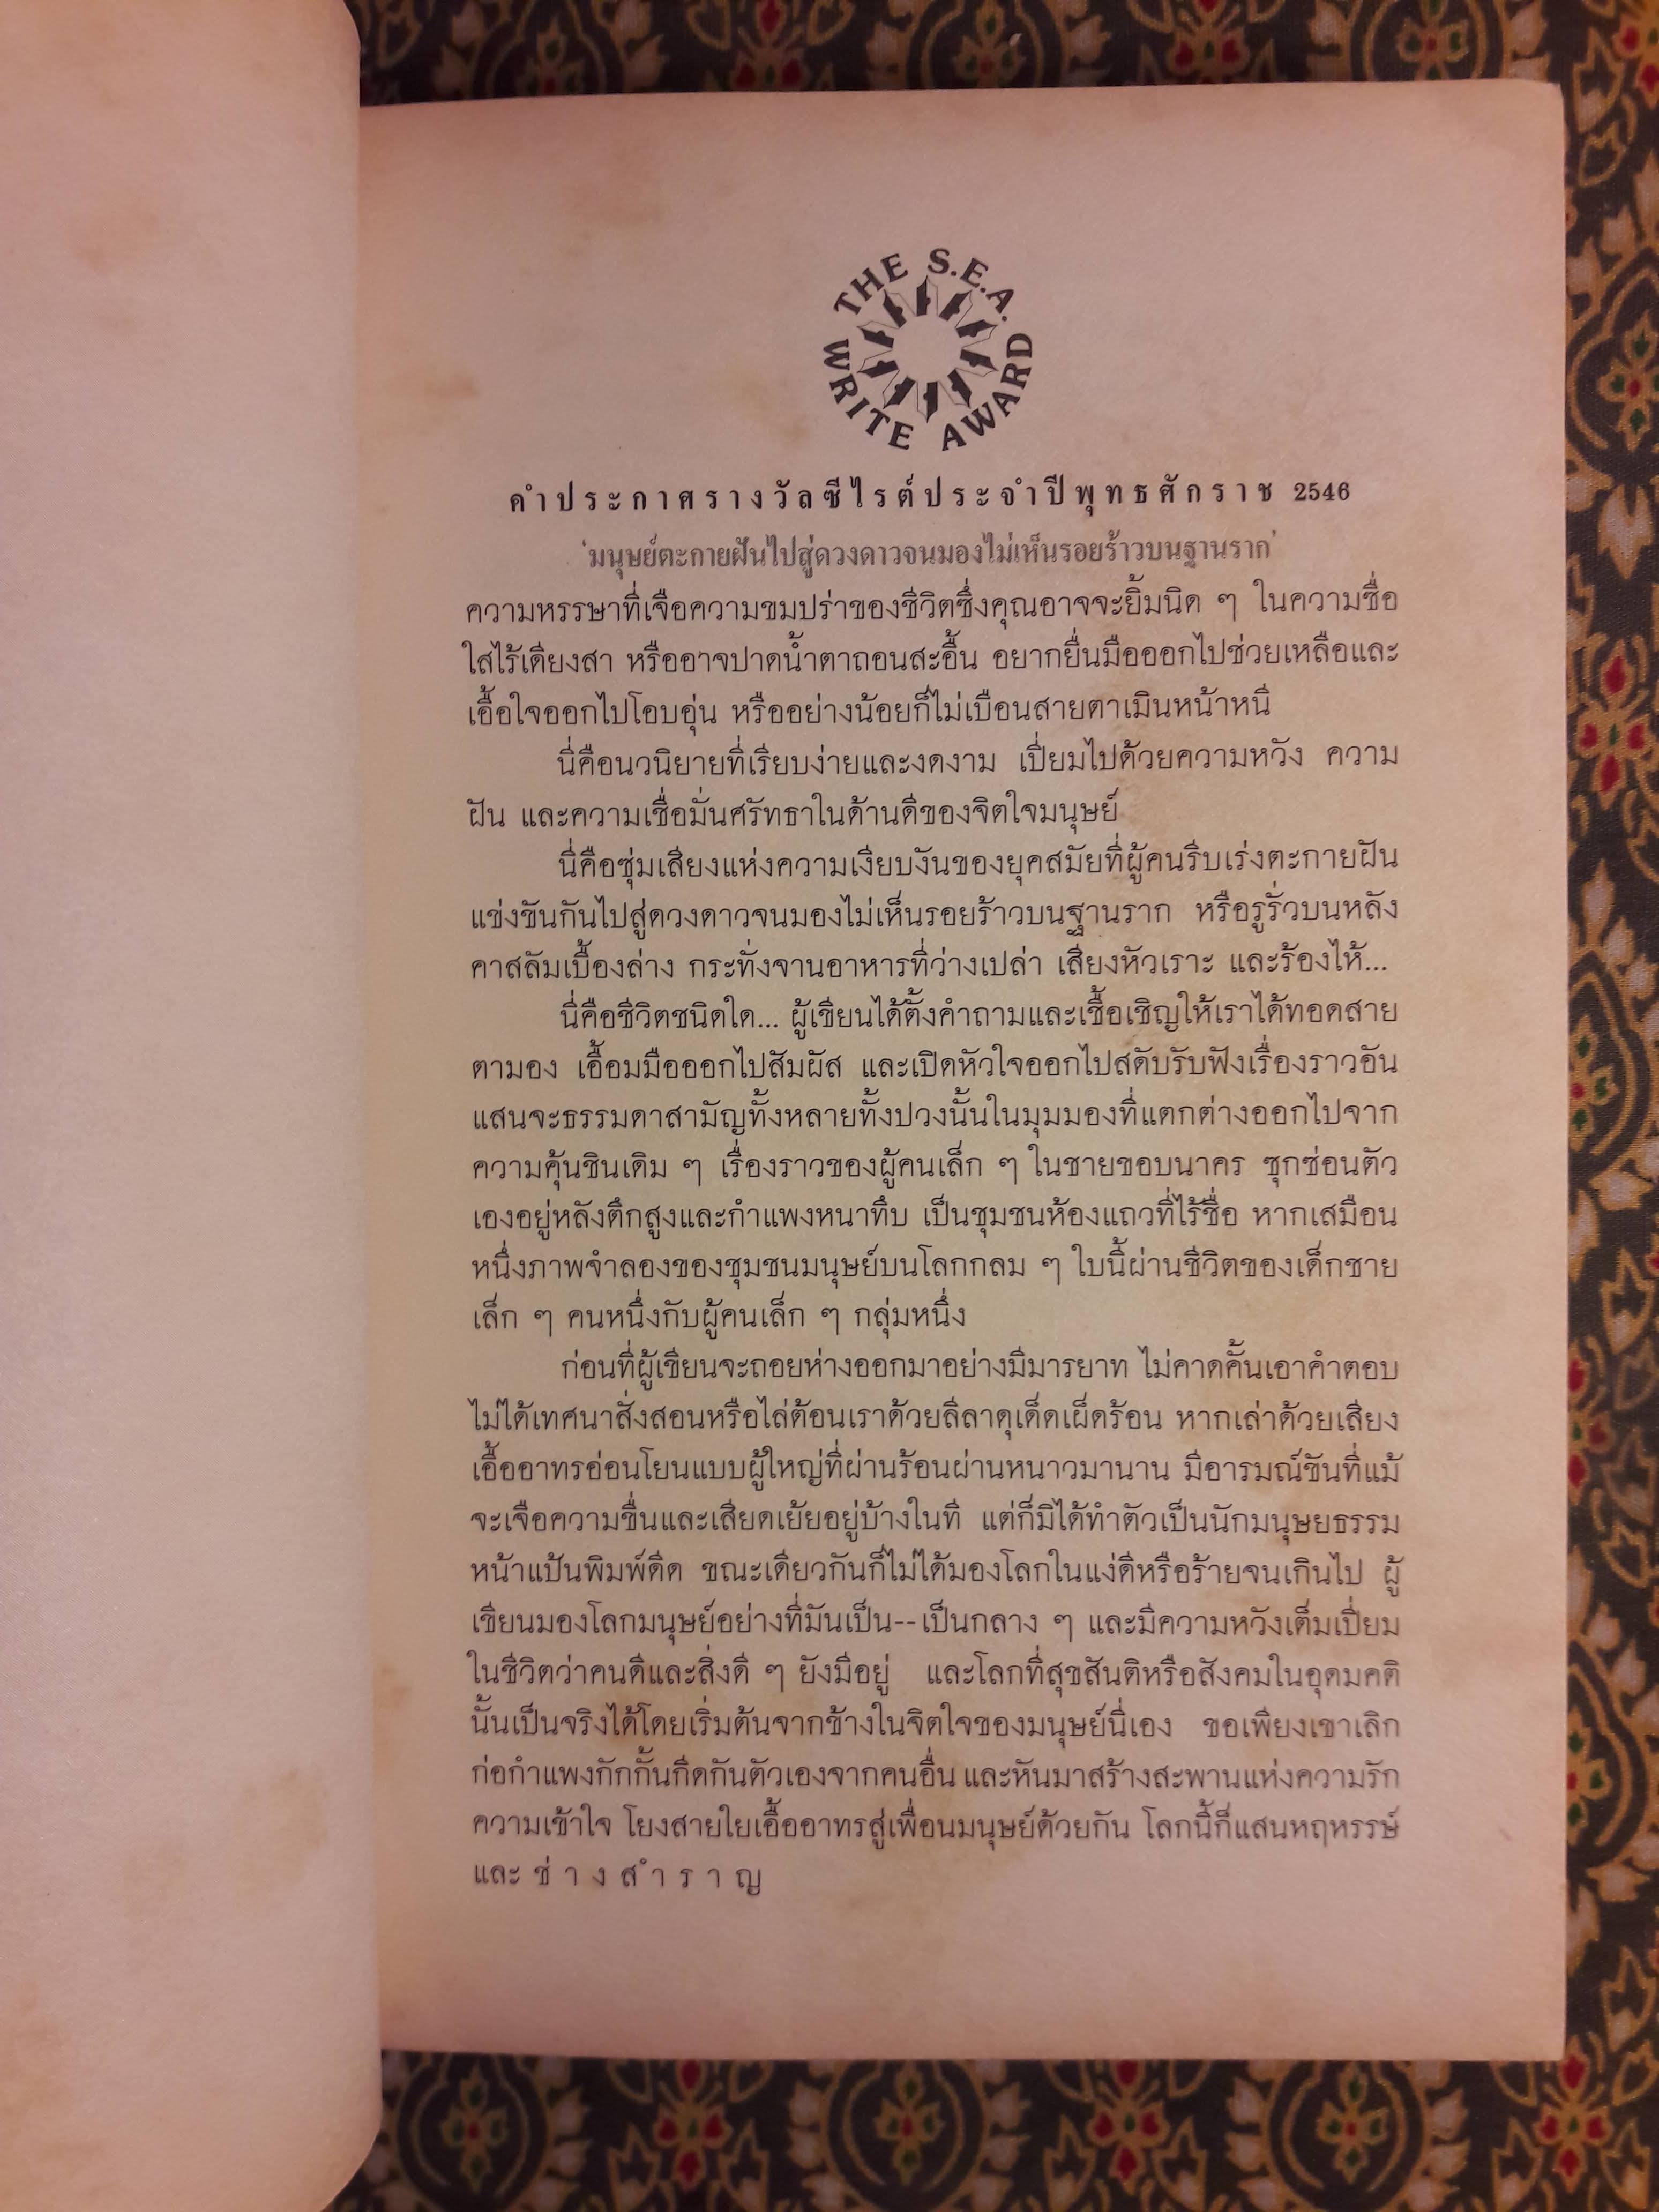 THE S.E.A. WRITE AWARD
คำประกาศรางวัลซีไรต์ประจำปีพุทธศักราช 2546
'มนุษย์ตะกายฝันไปสู่ดวงดาวจนมองไม่เห็นรอยร้าวบนฐานราก'
ความหรรษาที่เจือความขมปร่าของชีวิตซึ่งคุณอาจจะยิ้มนิด ๆ ในความซื่อ
ใสไร้เดียงสา หรืออาจปาดน้ำตาถอนสะอื้น อยากยื่นมือออกไปช่วยเหลือและ
เอื้อใจออกไปโอบอุ่น หรืออย่างน้อยก็ไม่เบือนสายตาเมินหน้าหนี
นี่คือนวนิยายที่เรียบง่ายและงดงาม เปี่ยมไปด้วยความหวัง ความ
ฝัน และความเชื่อมั่นศรัทธาในด้านดีของจิตใจมนุษย์
นี่คือซุ่มเสียงแห่งความเงียบงันของยุคสมัยที่ผู้คนรีบเร่งตะกายฝัน
แข่งขันกันไปสู่ดวงดาวจนมองไม่เห็นรอยร้าวบนฐานราก หรือรูรั่วบนหลัง
คาสลัมเบื้องล่าง กระทั่งจานอาหารที่ว่างเปล่า เสียงหัวเราะ และร้องไห้...
นี่คือชีวิตชนิดใด... ผู้เขียนได้ตั้งคำถามและเชื้อเชิญให้เราได้ทอดสาย
ตามอง เอื้อมมือออกไปสัมผัส และเปิดหัวใจออกไปสดับรับฟังเรื่องราวอัน
แสนจะธรรมดาสามัญทั้งหลายทั้งปวงนั้นในมุมมองที่แตกต่างออกไปจาก
ความคุ้นชินเดิม ๆ เรื่องราวของผู้คนเล็ก ๆ ในชายขอบนาคร ซุกซ่อนตัว
เองอยู่หลังตึกสูงและกำแพงหนาทึบ เป็นชุมชนห้องแถวที่ไร้ชื่อ หากเสมือน
หนึ่งภาพจำลองของชุมชนมนุษย์บนโลกกลม ๆ ใบนี้ผ่านชีวิตของเด็กชาย
เล็ก ๆ คนหนึ่งกับผู้คนเล็ก ๆ กลุ่มหนึ่ง
ก่อนที่ผู้เขียนจะถอยห่างออกมาอย่างมีมารยาท ไม่คาดคั้นเอาคำตอบ
ไม่ได้เทศนาสั่งสอนหรือไล่ต้อนเราด้วยลีลาดุเด็ดเผ็ดร้อน หากเล่าด้วยเสียง
เอื้ออาทรอ่อนโยนแบบผู้ใหญ่ที่ผ่านร้อนผ่านหนาวมานาน มีอารมณ์ขันที่แม้
จะเจือความขื่นและเสียดเย้ยอยู่บ้างในที แต่ก็มิได้ทำตัวเป็นนักมนุษยธรรม
หน้าแป้นพิมพ์ดีด ขณะเดียวกันก็ไม่ได้มองโลกในแง่ดีหรือร้ายจนเกินไป ผู้
เขียนมองโลกมนุษย์อย่างที่มันเป็น--เป็นกลาง ๆ และมีความหวังเต็มเปี่ยม
ในชีวิตว่าคนดีและสิ่งดี ๆ ยังมีอยู่ และโลกที่สุขสันติหรือสังคมในอุดมคติ
นั้นเป็นจริงได้โดยเริ่มต้นจากข้างในจิตใจของมนุษย์นี่เอง ขอเพียงเขาเลิก
ก่อกำแพงกักกั้นกีดกันตัวเองจากคนอื่น และหันมาสร้างสะพานแห่งความรัก
ความเข้าใจ โยงสายใยเอื้ออาทรสู่เพื่อนมนุษย์ด้วยกัน โลกนี้ก็แสนหฤหรรษ์
และ ช่ า ง สํ า ร า ญ